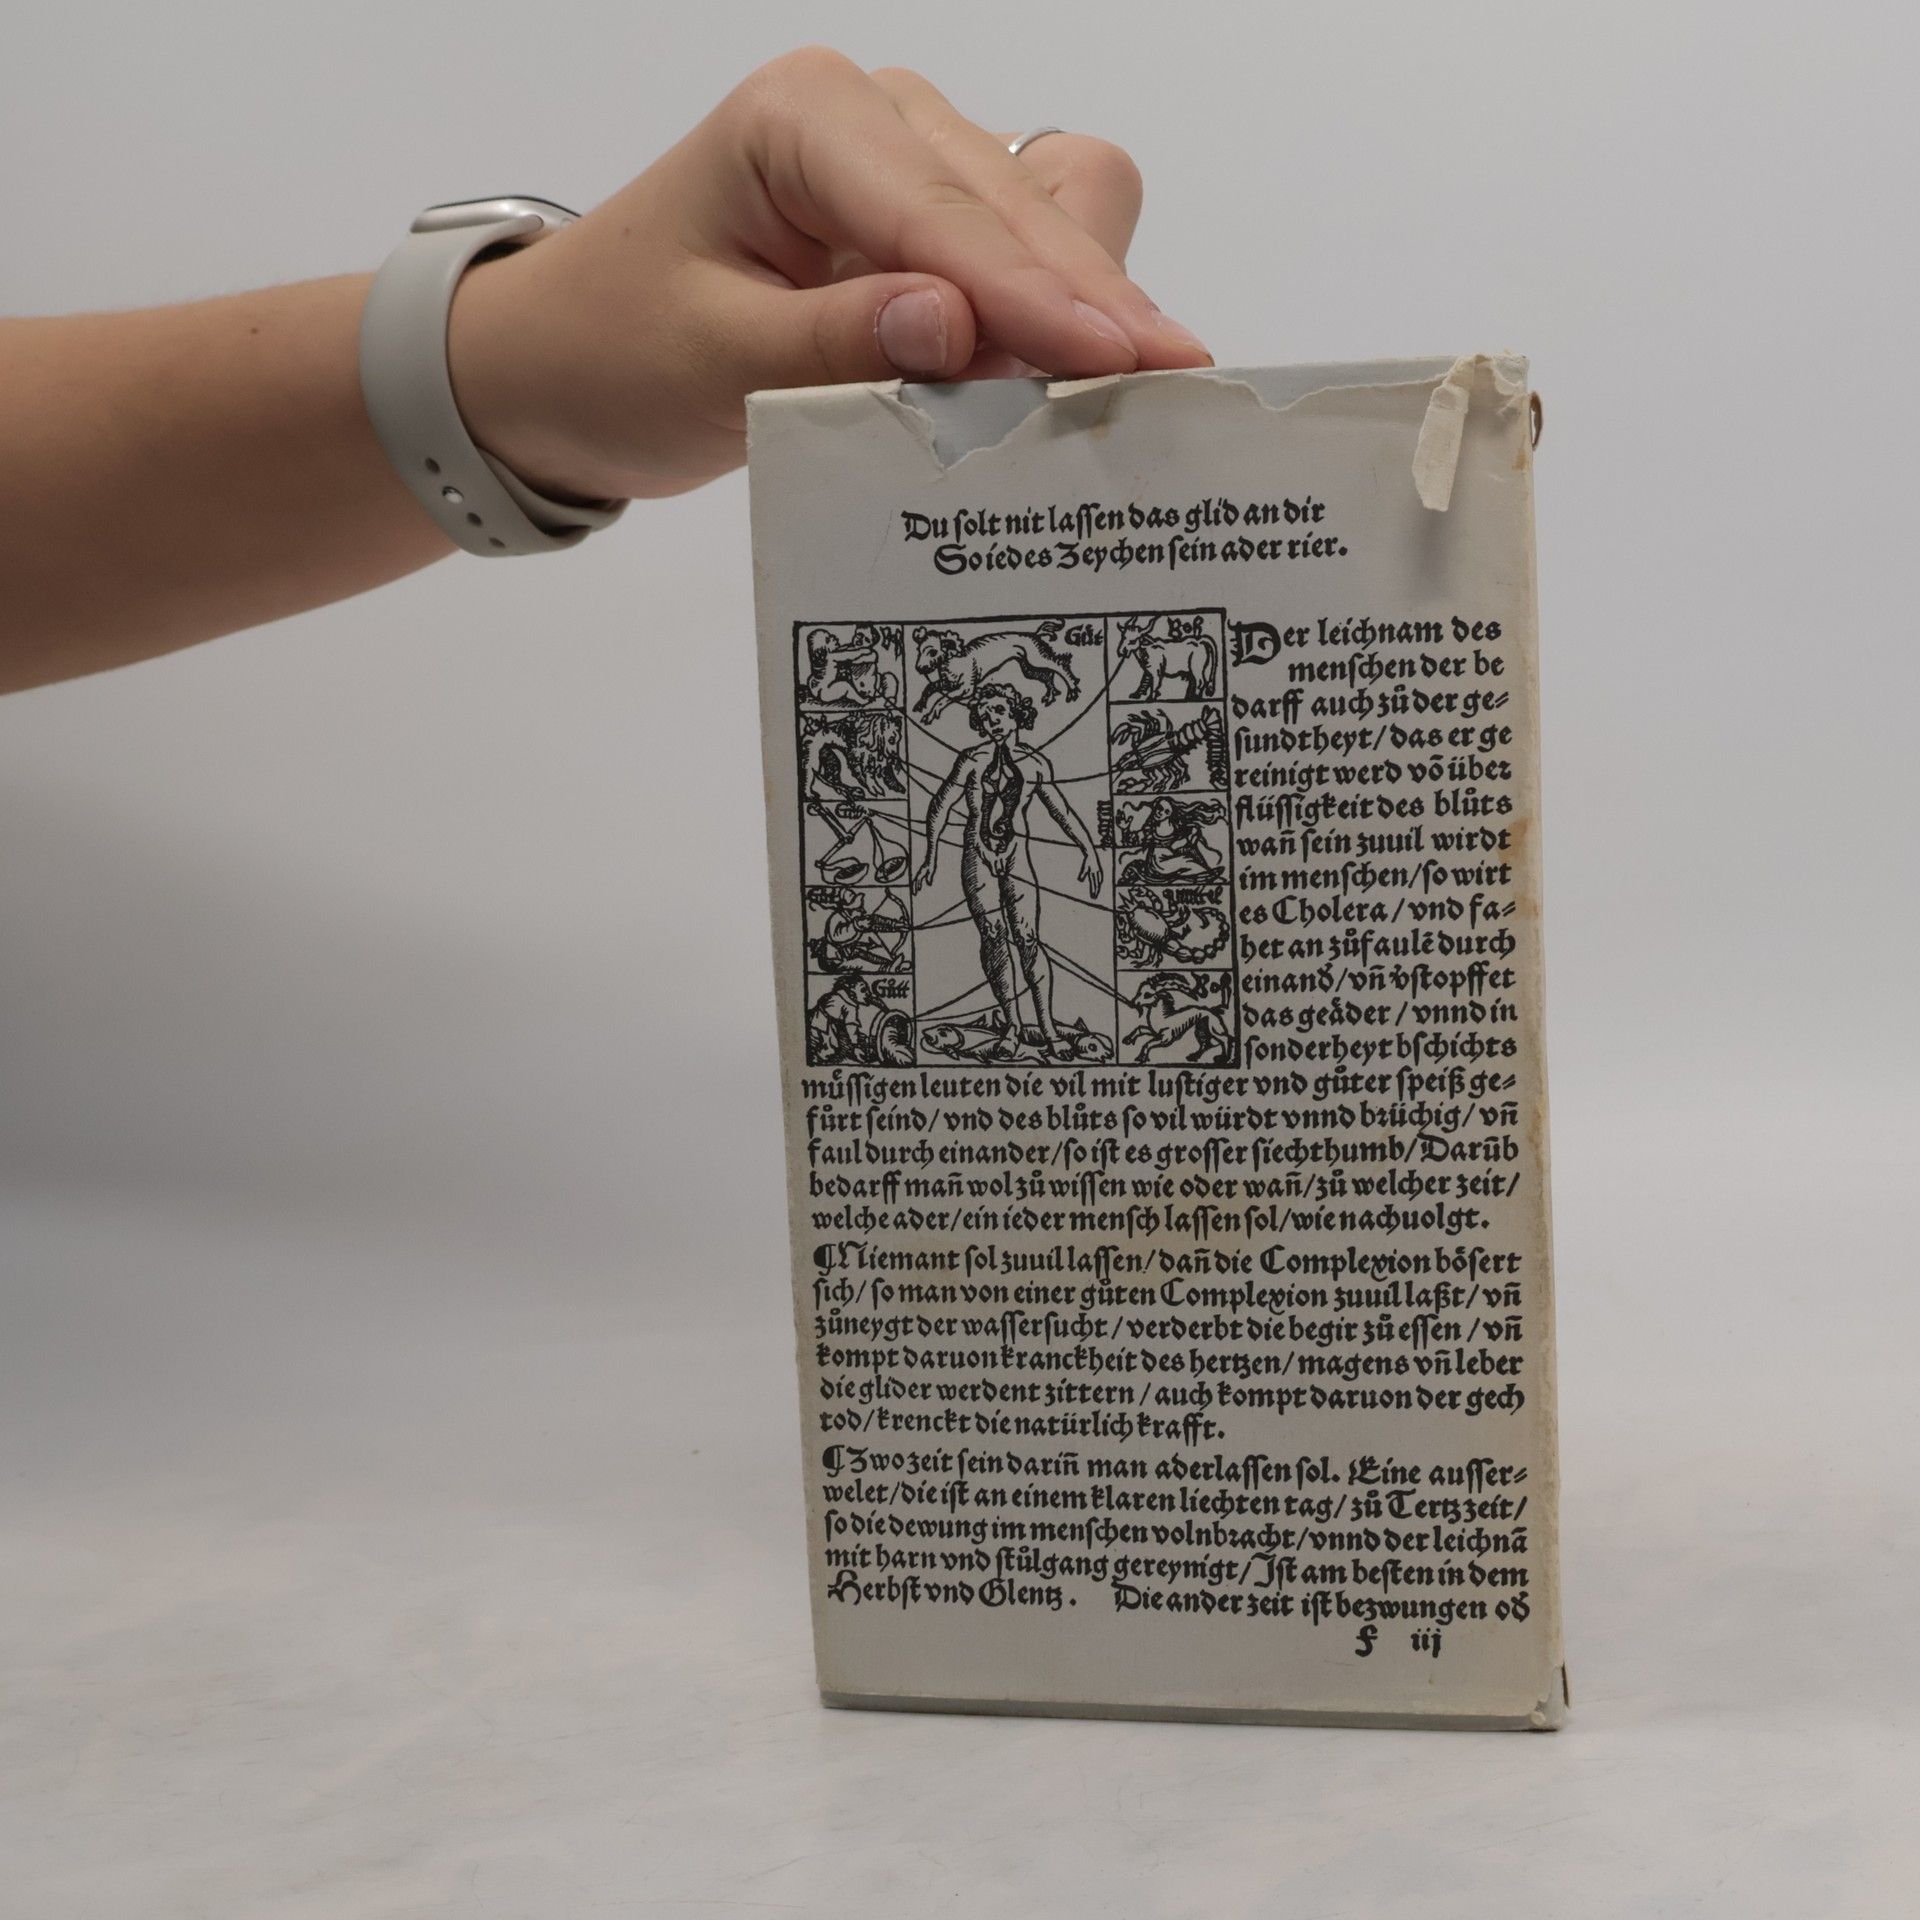 Du ſolt nit laſſen das glid an dir
So iedes Zeychen ſein ader rier.
Bŏß
Gůt
Boß
Gůt
mittel
Gůtt
Boß
Der leichnam des
menſchen der be
darff auch zů der ge⸗
ſundtheyt / das er ge
reinigt werd võ über
flüſſigkeit des blůts
wañ ſein zuuil wirdt
im menſchen / ſo wirt
es Cholera / vnd fa⸗
het an zů faulē durch
einand̕ / vñ v̕ſtopffet
das geäder / vnnd in
ſonderheyt bſchichts
müſſigen leuten die vil mit luſtiger vnd gůter ſpeiß ge⸗
fůrt ſeind / vnd des blůts ſo vil würdt vnnd brüchig / vñ
faul durch einander / ſo iſt es groſſer ſiechthumb / Darūb
bedarff mañ wol zů wiſſen wie oder wañ / zů welcher zeit /
welche ader / ein ieder menſch laſſen ſol / wie nachuolgt.
¶ Niemant ſol zuuil laſſen / dañ die Complexion böſert
ſich / ſo man von einer gůten Complexion zuuil laßt / vñ
zůneygt der waſſerſucht / verderbt die begir zů eſſen / vñ
kompt daruon kranckheit des hertzen / magens vñ leber
die glider werdent zittern / auch kompt daruon der gech
tod / krenckt die natürlich krafft.
¶ Zwo zeit ſein dariñ man aderlaſſen ſol. Eine auſſer⸗
welet / die iſt an einem klaren liechten tag / zů Tertz zeit /
ſo die dewung im menſchen volnbracht / vnnd der leichnā
mit harn vnd ſtůlgang gereynigt / Iſt am beſten in dem
Herbſt vnd Glentz. Die ander zeit iſt bezwungen od̕
f iij